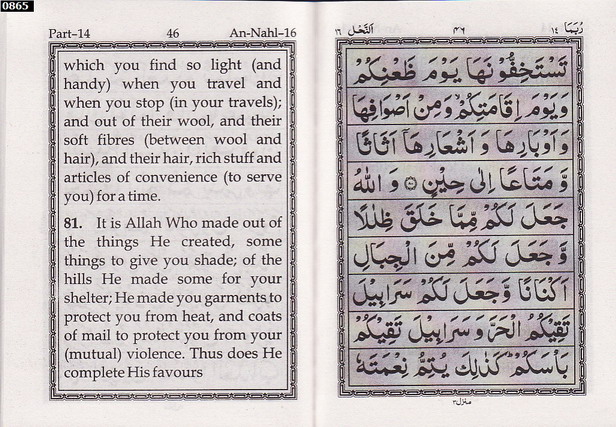 0865
Part-14 46 An-Nahl-16
which you find so light (and
handy) when you travel and
when you stop (in your travels);
and out of their wool, and their
soft fibres (between wool and
hair), and their hair, rich stuff and
articles of convenience (to serve
you) for a time.
81. It is Allah Who made out of
the things He created, some
things to give you shade; of the
hills He made some for your
shelter; He made you garments to
protect you from heat, and coats
of mail to protect you from your
(mutual) violence. Thus does He
complete His favours
رُبَمَا ١٤ ٤٦ اَلنَّحْل ١٦
تَسْتَخِفُّوْنَهَا يَوْمَ ظَعْنِكُمْ
وَيَوْمَ اِقَامَتِكُمْ ۙ وَمِنْ اَصْوَافِهَا
وَ اَوْبَارِهَا وَ اَشْعَارِهَاۤ اَثَاثًا
وَّ مَتَاعًا اِلٰى حِيْنٍ ۝ وَ اللّٰهُ
جَعَلَ لَكُمْ مِّمَّا خَلَقَ ظِلٰلًا
وَّ جَعَلَ لَكُمْ مِّنَ الْجِبَالِ
اَكْنَانًا وَّ جَعَلَ لَكُمْ سَرَابِيْلَ
تَقِيْكُمُ الْحَرَّ وَ سَرَابِيْلَ تَقِيْكُمْ
بَاْسَكُمْ ؕ كَذٰلِكَ يُتِمُّ نِعْمَتَهٗ
منزل ٣